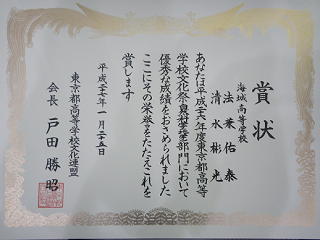 賞状
海城高等学校
法兼佑泰
清水彬光
あなたは平成二十六年度東京都高等
学校文化祭
部門において
優秀な成績をおさめられました
ここにその栄誉をたたえこれを
賞します
平成二十七年一月二十五日
東京都高等学校文化連盟
会長 戸田勝昭